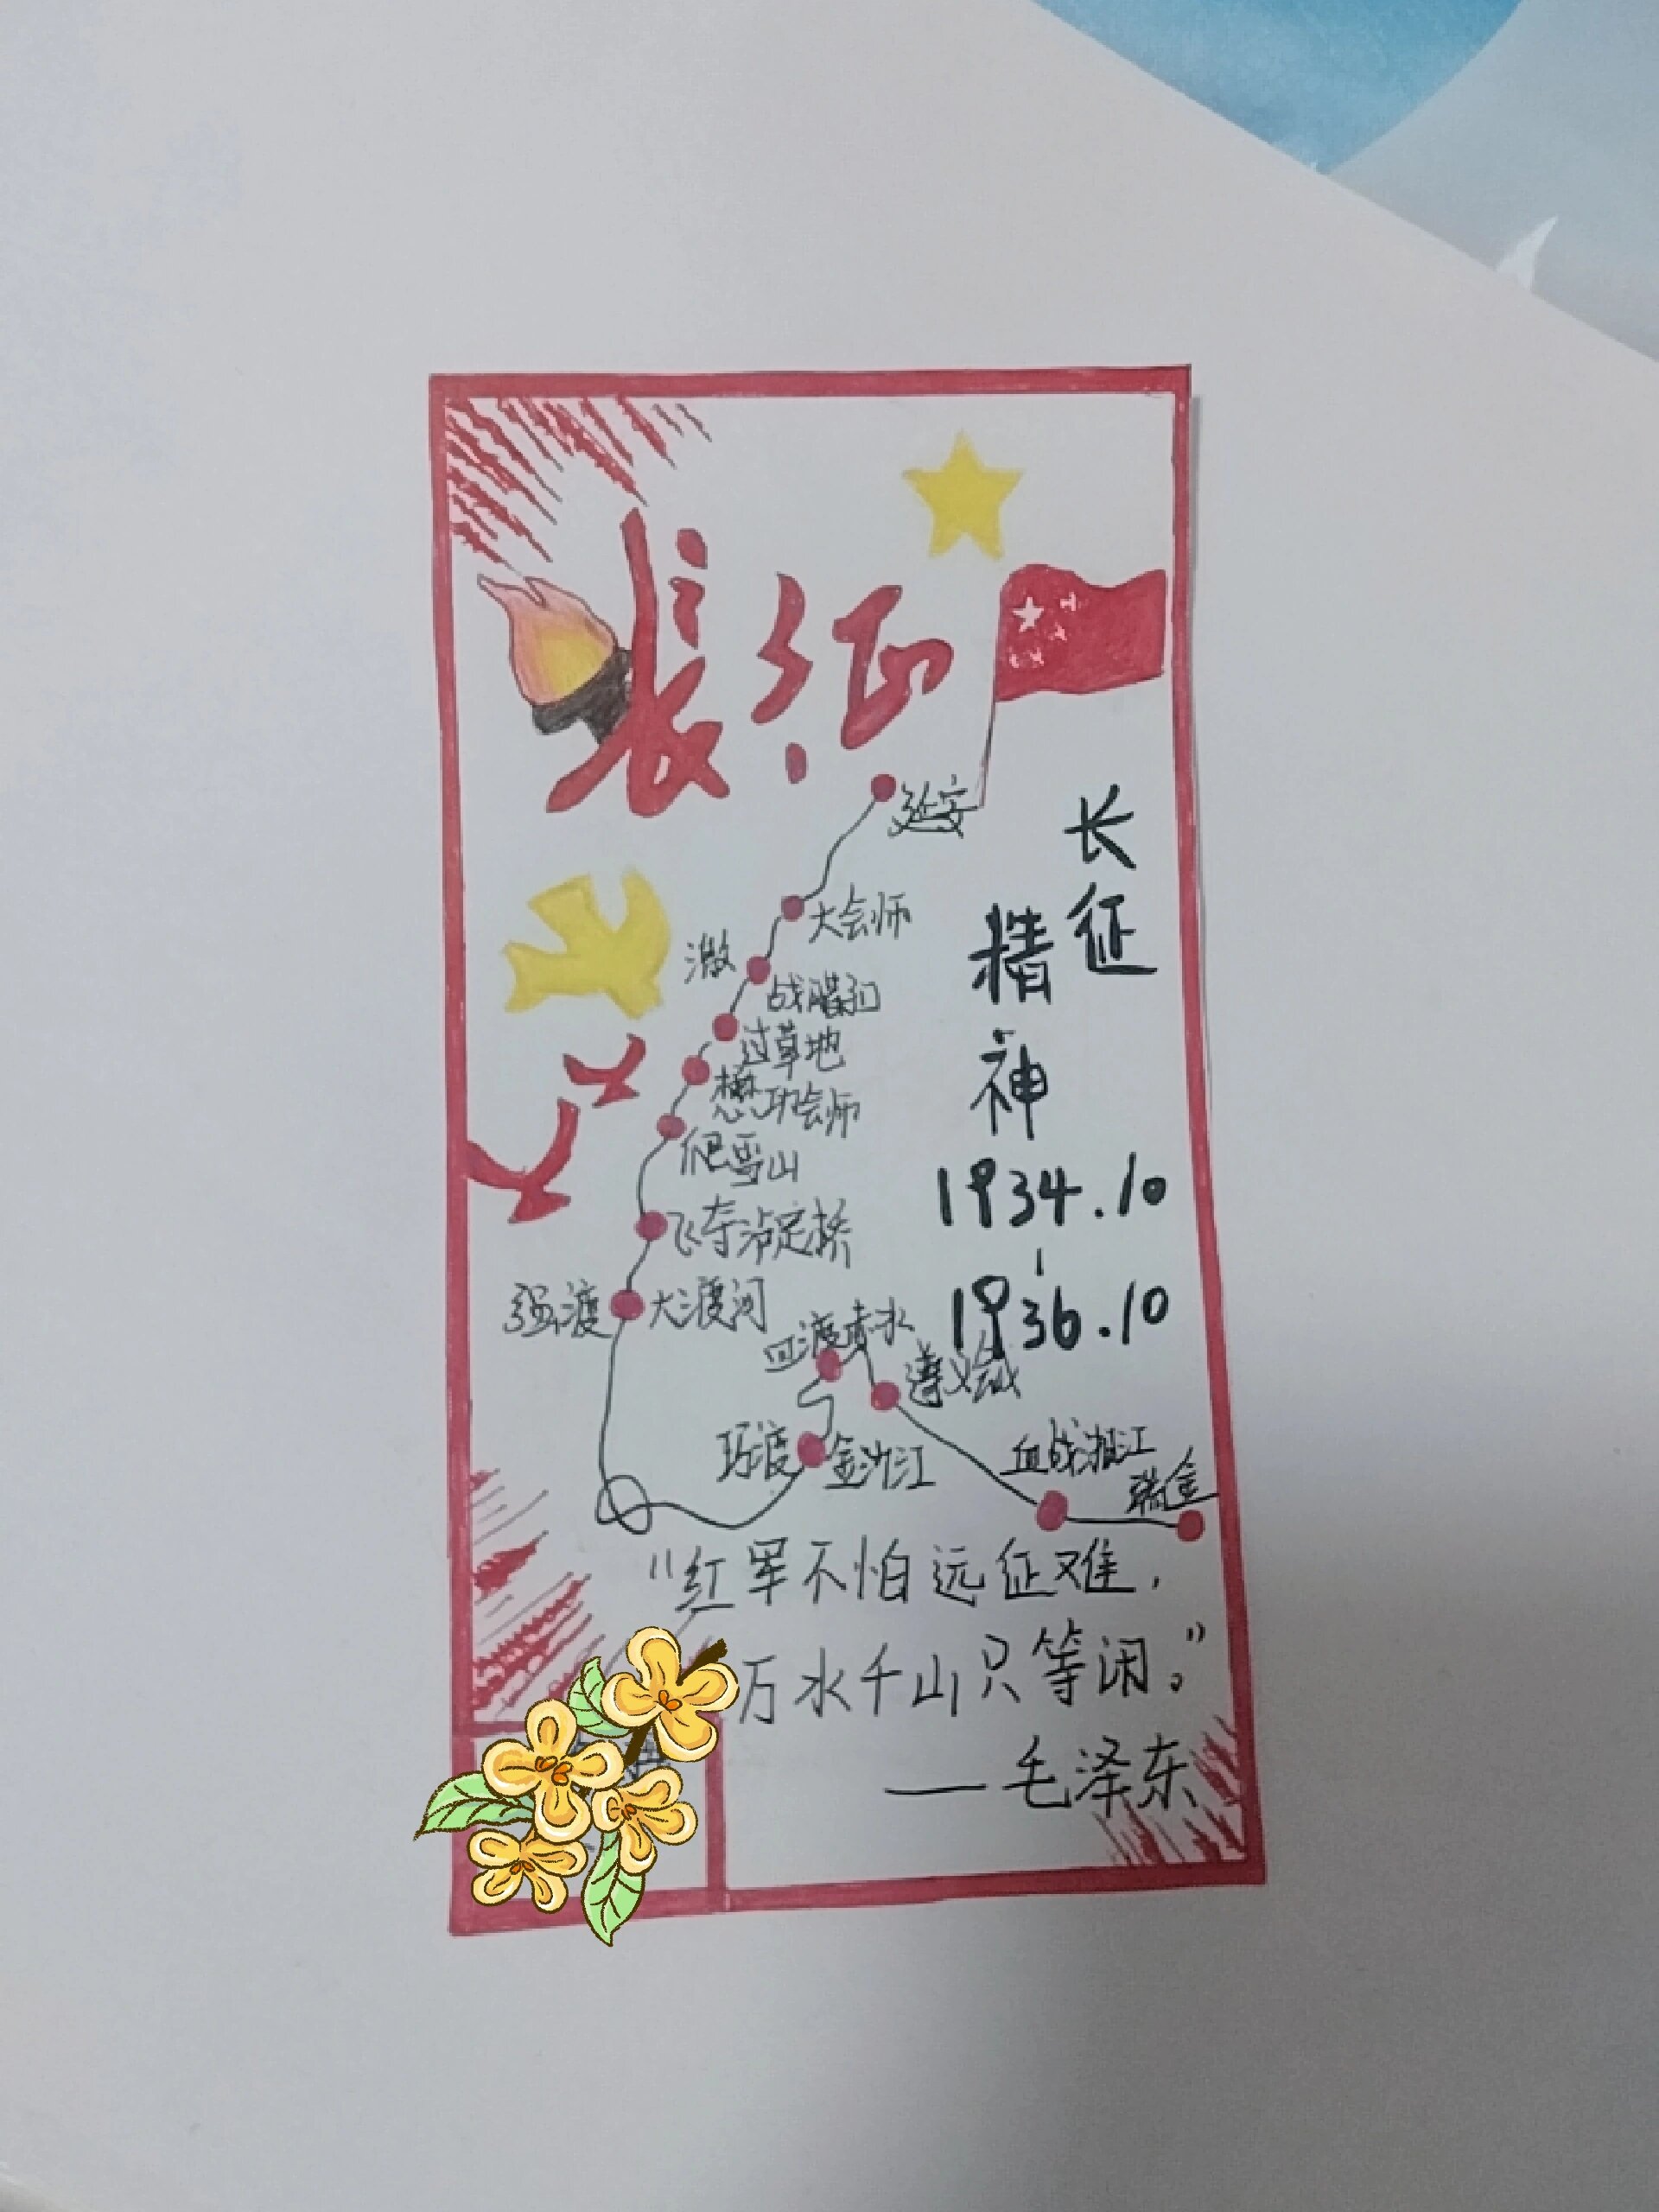 长征
延安
长征
精神
大会师
激战腊子口
过草地
懋功会师
爬雪山
飞夺泸定桥
1934.10
-
1936.10
强渡大渡河
四渡赤水
遵义会议
巧渡金沙江
血战湘江
瑞金
"红军不怕远征难，
万水千山只等闲。"
——毛泽东